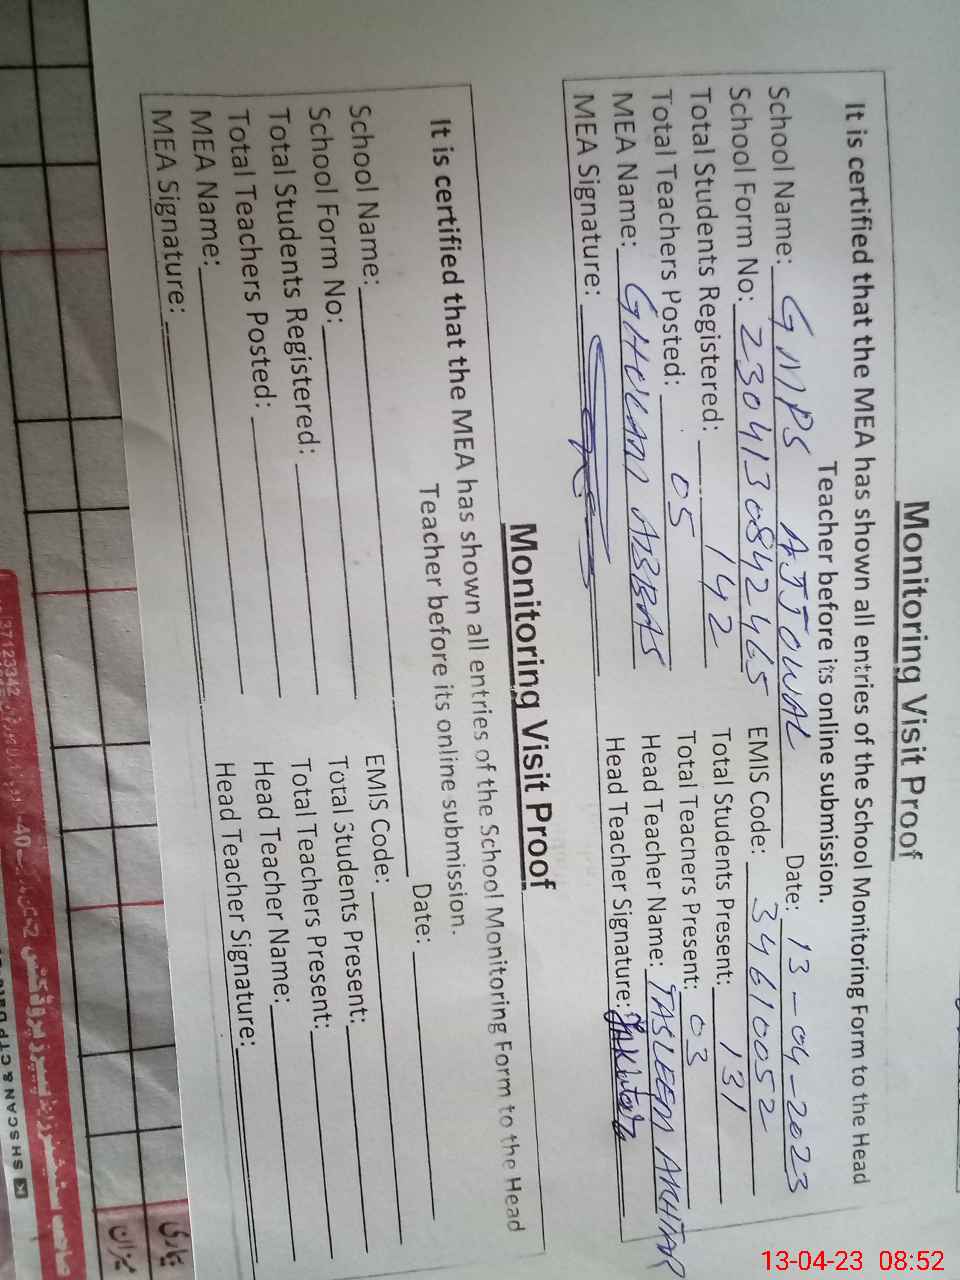 Monitoring Visit Proof
It is certified that the MEA has shown all entries of the School Monitoring Form to the Head
Teacher before its online submission.
School Name: GMPS AJJOWAL Date: 13-04-2023
School Form No: 2304130842465 EMIS Code: 34610052
Total Students Registered: 142 Total Students Present: 131
Total Teachers Posted: 05 Total Teachers Present: 03
MEA Name: GHULAM ABBAS Head Teacher Name: TASLEEM AKHTAR
MEA Signature: Head Teacher Signature:
Monitoring Visit Proof
It is certified that the MEA has shown all entries of the School Monitoring Form to the Head
Teacher before its online submission.
School Name: Date:
School Form No: EMIS Code:
Total Students Registered: Total Students Present:
Total Teachers Posted: Total Teachers Present:
MEA Name: Head Teacher Name:
MEA Signature: Head Teacher Signature:
میزان
13-04-23 08:52